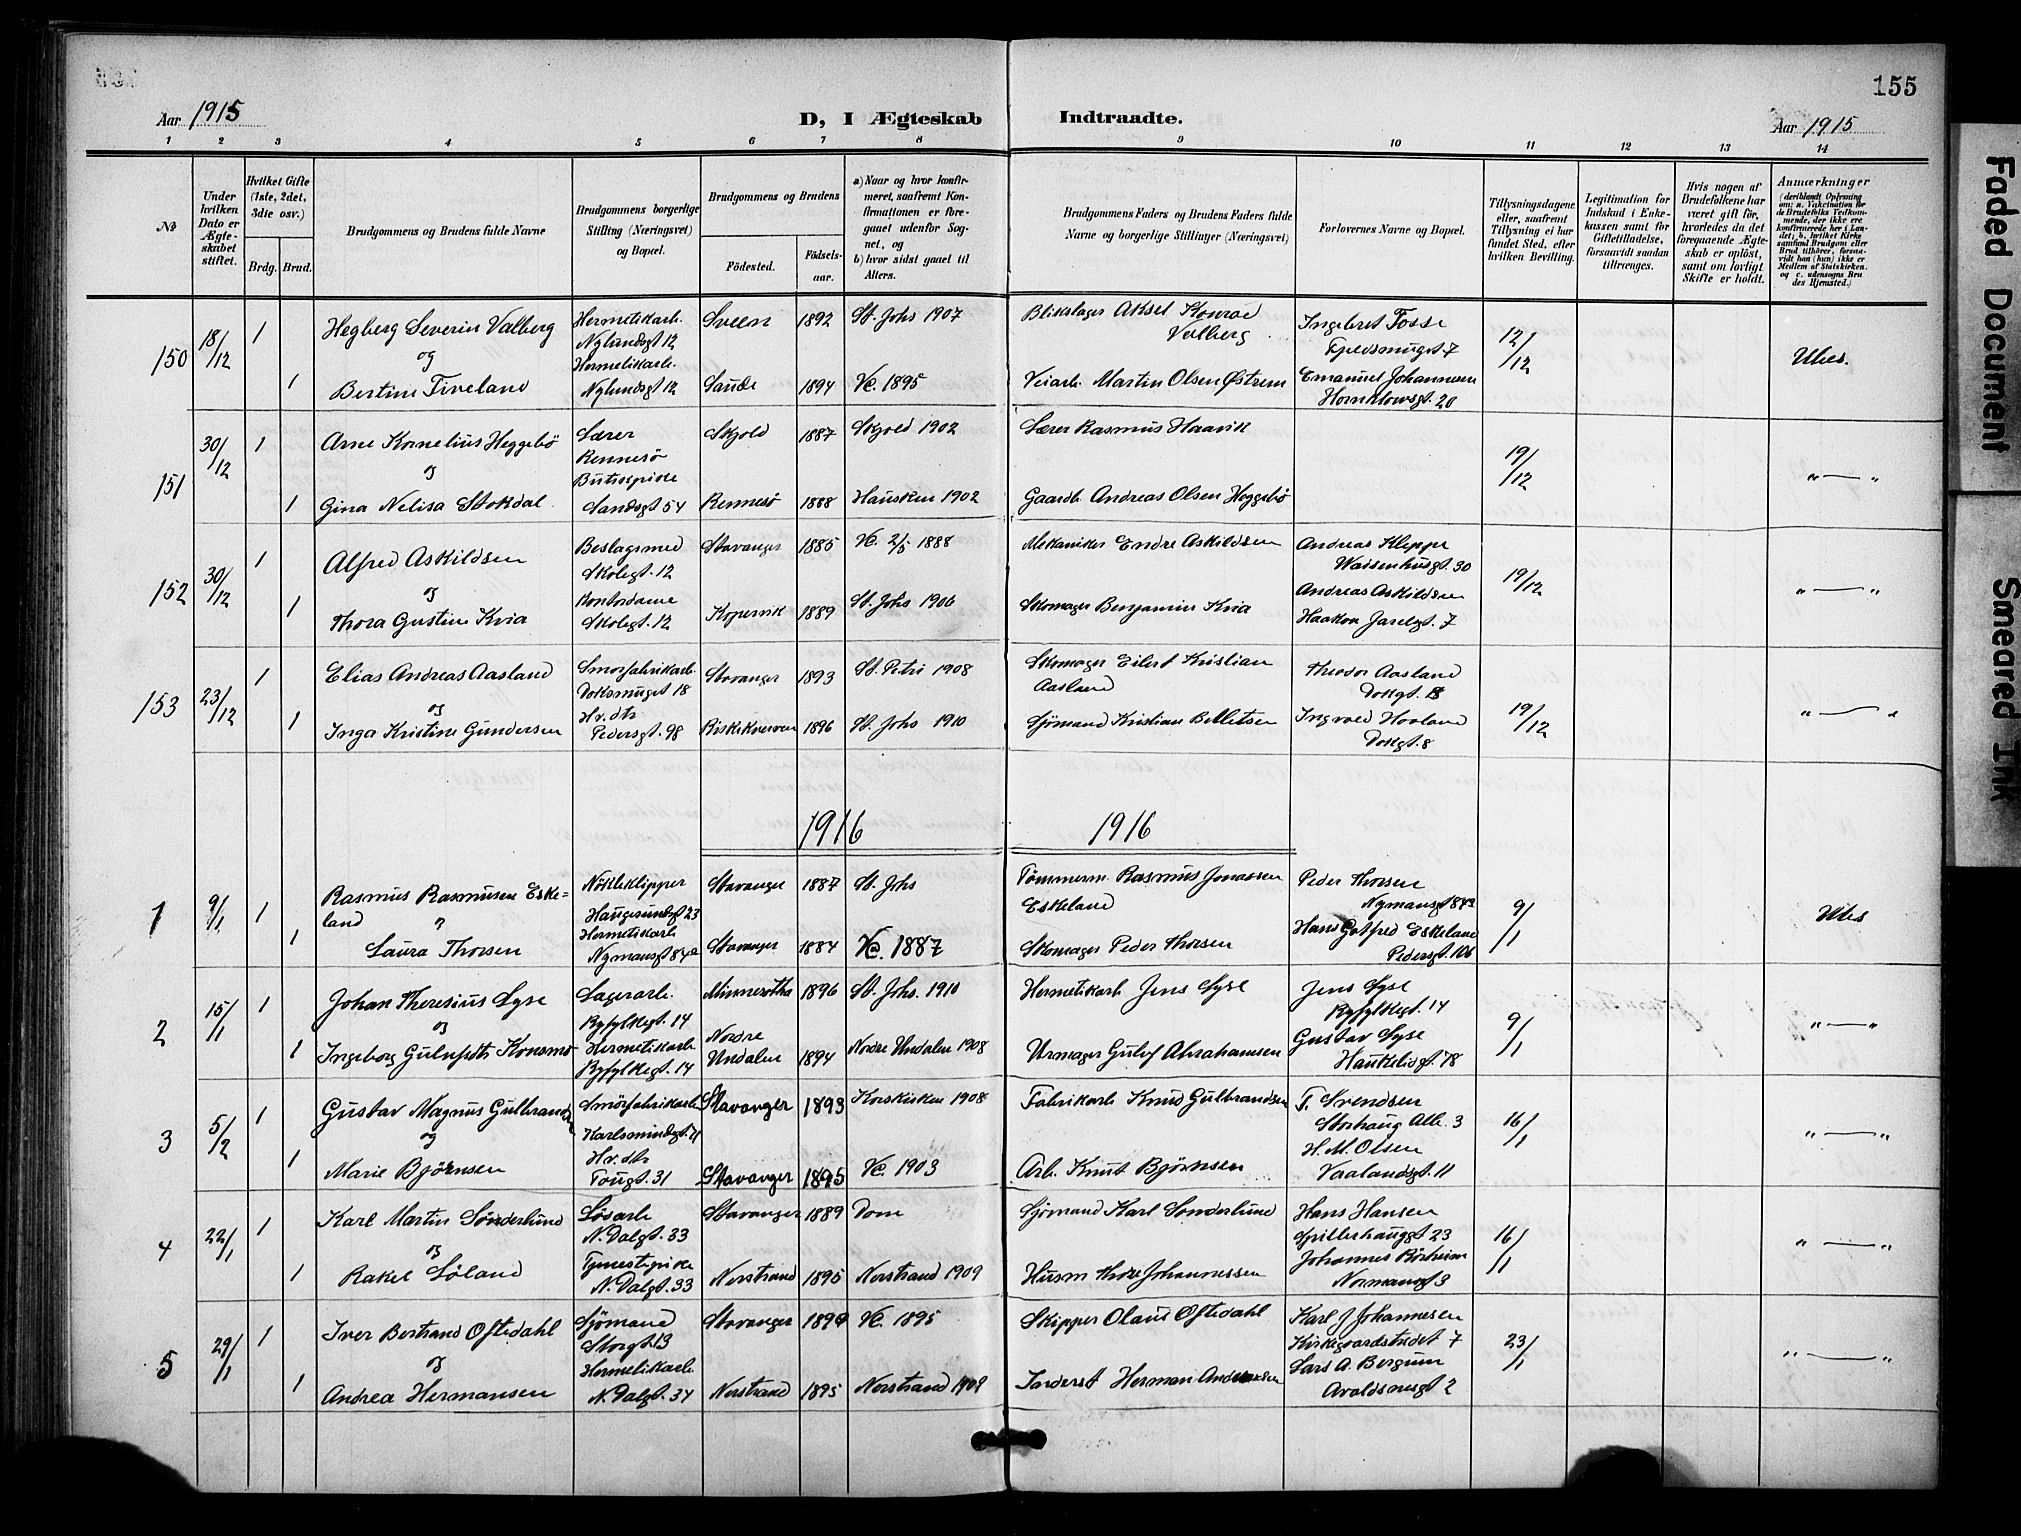 155
Aar 1915
D, I Ægteskab Indtraadte.
Aar 1915
1 2 3 4 5 6 7 8 9 10 11 12 13 14
№
Under hvilken Dato er Ægteskabet stiftet.
Hvilket Gifte (1ste, 2det, 3die osv.)
Brdg. Brud.
Brudgommens og Brudens fulde Navne
Brudgommens borgerlige Stilling (Næringsvei) og Bopæl.
Brudgommens og Brudens
Fødested. Fødselsaar.
a) Naar og hvor konfirmeret, saafremt Konfirmationen er foregaaet udenfor Sognet, og
b) hvor sidst gaaet til Alters.
Brudgommens Faders og Brudens Faders fulde Navne og borgerlige Stillinger (Næringsvei)
Forlovernes Navne og Bopæl.
Tillysningsdagene eller, saafremt Tillysning ei har fundet Sted, efter hvilken Bevilling.
Legitimation for Indskud i Enkekassen samt for Giftetilladelse, forsaavidt saadan tiltrænges.
Hvis nogen af Brudefolkene har været gift før, hvorledes da det foregaaende Ægteskab er opløst, samt om lovligt Skifte er holdt.
Anmærkninger
(deriblandt Oplysning om: a. Vakcination for de Brudefolks Vedkommende, der ikke ere konfirmerede her i Landet; b. hvilket Kirkesamfund Brudgom eller Brud tilhører, forsaavidt han (hun) ikke er Medlem af Statskirken, og c. udensogns Brudes Hjemsted.)
150 18/12 1 Hegberg Severin Valberg Hermetikarb. Nylundsgt 12 Sveen 1892 St. Johs 1907 Blikslager Aksel Konrad Valberg Ingebret Fosse 12/12 Ubes.
og
1 Bertine Tiveland Hermetikarb. Nylundsgt 12 Saude 1894 Vc. 1895 Veiarb. Martin Olsen Østrem Emanuel Johannesen 20
151 30/12 1 Arne Kornelius Heggebø Lærer Rennesø Skjold 1887 Skjold 1902 Lærer Rasmus Haavik 19/12 " — "
og
1 Gina Nelisa Stokdal Butikpike Sandsgt 54 Rennesø 1888 Hausken 1902 Gaardb. Andreas Olsen Heggebø
152 30/12 1 Alfred Askildsen Beslagsmed Skolegt. 12 Stavanger 1885 Vc. 2/5 1888 Mekaniker Endre Askildsen Andreas Kleppe Waisenhusgt. 30 19/12 " — "
og
1 Thora Gustine Kvia Kontordame Skolegt. 12 Kopervik 1889 St. Johs 1906 Skomager Benjamin Kvia Andreas Askildsen Haakon Jarelgt. 7
153 23/12 1 Elias Andreas Aasland Smørfabrikarb. Doksmuget 18 Stavanger 1893 St. Petri 1908 Skomager Eilert Kristian Aasland Theodor Aasland Dokgt. 19/12 " — "
og
1 Inga Kristine Gundersen Hr. dtr Pedersgt. 98 1896 St. Johs 1910 Sjømand Kristian Ingvald Hovland Dokgt. 8
1916 1916
1 9/1 1 Rasmus Rasmusen Eskeland Nøkleklipper Haugesundgt 23 Stavanger 1887 St. Johs Tømmerm. Rasmus Jonassen Eskeland Peder Thorsen Nymansgt 9/1 Ubes
"
1 Laura Thorsen Hermetikarb Nymansgt 84 Stavanger 1884 Vc. 1887 Skomager Peder Thorsen Hans Gotfred Eskeland Pedersgt. 106
2 15/1 1 Johan Theresius Lyse Lagerarb. Ryfylkegt. 14 Minnesotha 1896 St. Johs. 1910 Hermetikarb Jens Lyse Jens Lyse Ryfylkegt. 14 9/1 " — "
og
1 Ingeborg Konsmo Hermetikarb Ryfylkegt. 14 Nordre Undalen 1894 Nordre Undalen 1908 Urmager Gulof Abrahamsen Gustav Lyse Haukeligt. 78
3 5/2 1 Gustav Magnus Gulbrandsen Smørfabrikarb Karlsmindegt. 71 Stavanger 1893 Korskirken 1908 Fabrikarb Knud Gulbrandsen T. Svendsen Storhaug Alle. 3 16/1 " — "
og
1 Marie Bjørnsen Hr. dtr Tougt. 31 Stavanger 1895 Vc. 1903 Arb. Knut Bjørnsen H. M. Olsen Vaalandsgt. 11
4 22/1 1 Karl Martin Sønderlund Løsarb N. Dalgt. 33 Stavanger 1889 Dom Sjømand Karl Sonderlund Hans Hansen Spilderhauggt 23 16/1 " — "
og
1 Rakel Løland Tjenestepike N. Dalgt. 33 Nerstrand 1895 Nerstrand 1909 Husm Thore Johannessen Johannes Normansgt 3
5 29/1 1 Iver Bertrand Oftedahl Sjømand Storgt. 13 Stavanger 189 Vc. 1895 Skipper Olaus Oftedahl Karl J Johannesen Kirkegaardstrædet 7 23/1 " — "
og
1 Andrea Hermansen Hermetikarb N. Dalgt. 34 Nerstrand 1895 Nerstrand 1909 Inderst Herman Lars A. Bergum Avaldsnesgt 2
Faded Document
Smeared Ink